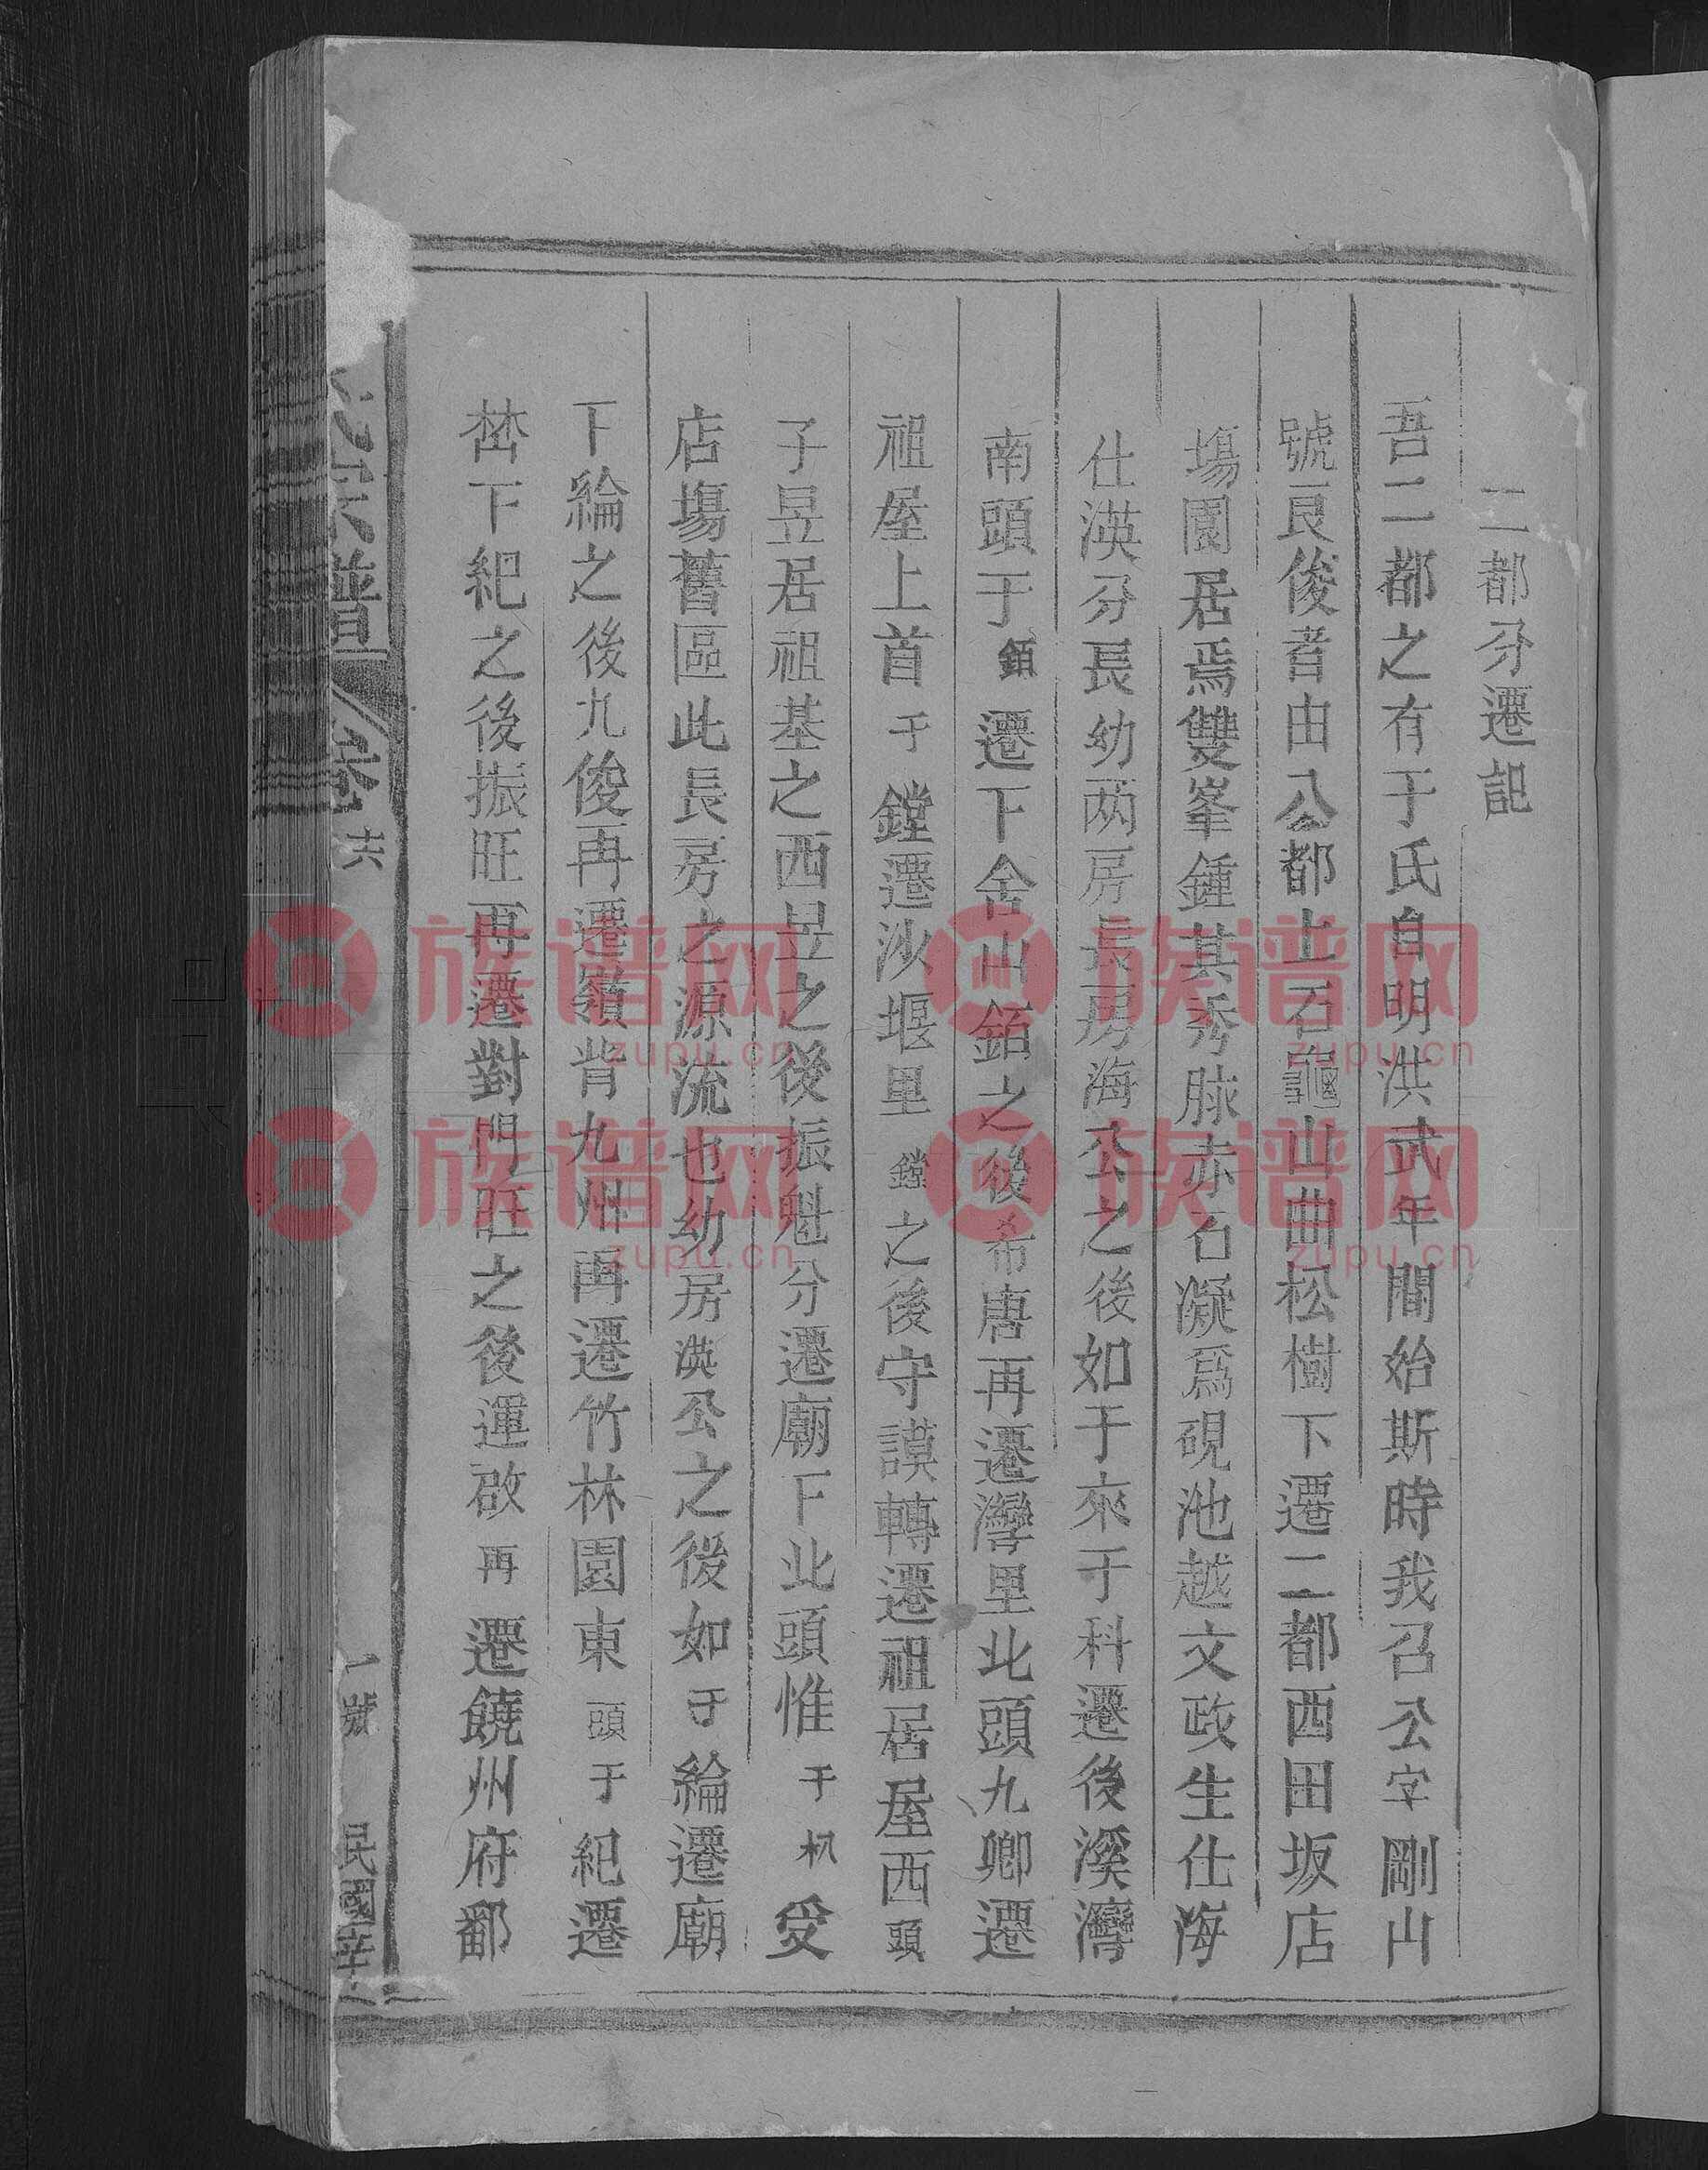 二都分遷記
吾二都之有于氏自明洪武年間始斯時我召公字剛山
號良俊者由八都上石龜山曲松樹下遷二都西田坂店
場園居焉雙峯鍾其秀脉赤石凝爲硯池越文政生仕海
仕渶分長幼两房長房海公之後如于來于科遷後溪灣
南頭于銆遷下舍山銆之後希唐再遷灣里北頭九卿遷
祖屋上首于鏜遷沙堰里鏜之後守謨轉遷祖居屋西頭
子昱居祖基之西昱之後振魁分遷廟下北頭惟于朳受
店場舊區此長房之源流也幼房渶公之後如于綸遷廟
下綸之後九俊再遷嶺背九州再遷竹林園東頭于紀遷
嵾下紀之後振旺再遷對門旺之後運啟再遷饒州府鄱
氏宗譜 卷 共 一號 民國辛
族谱网 族谱网
zupu.cn zupu.cn
族谱网 族谱网
zupu.cn zupu.cn